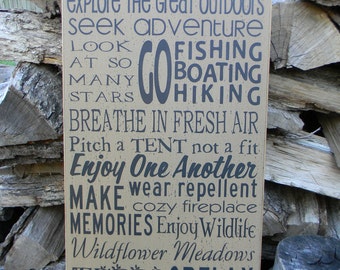 EXPLORE THE GREAT OUTDOORS
SEEK ADVENTURE
LOOK AT SO MANY STARS
GO FISHING BOATING HIKING
BREATHE IN FRESH AIR
Pitch a TENT not a fit
Enjoy One Another
MAKE MEMORIES
wear repellent
cozy fireplace
Enjoy Wildlife
Wildflower Meadows